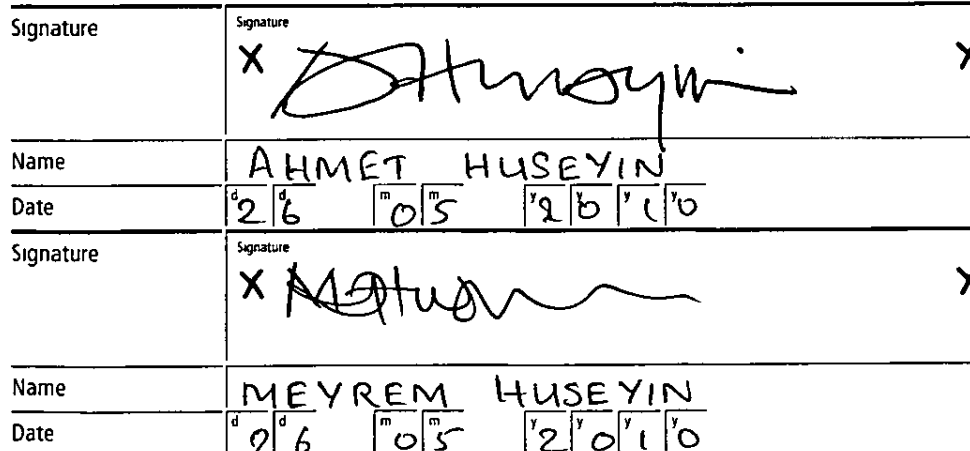 Signature
Signature
X Huseyin X
Name AHMET HUSEYIN
Date d2 d6 m0 m5 y2 y0 y1 y0
Signature
Signature
X X
Name MEYREM HUSEYIN
Date d2 d6 m0 m5 y2 y0 y1 y0